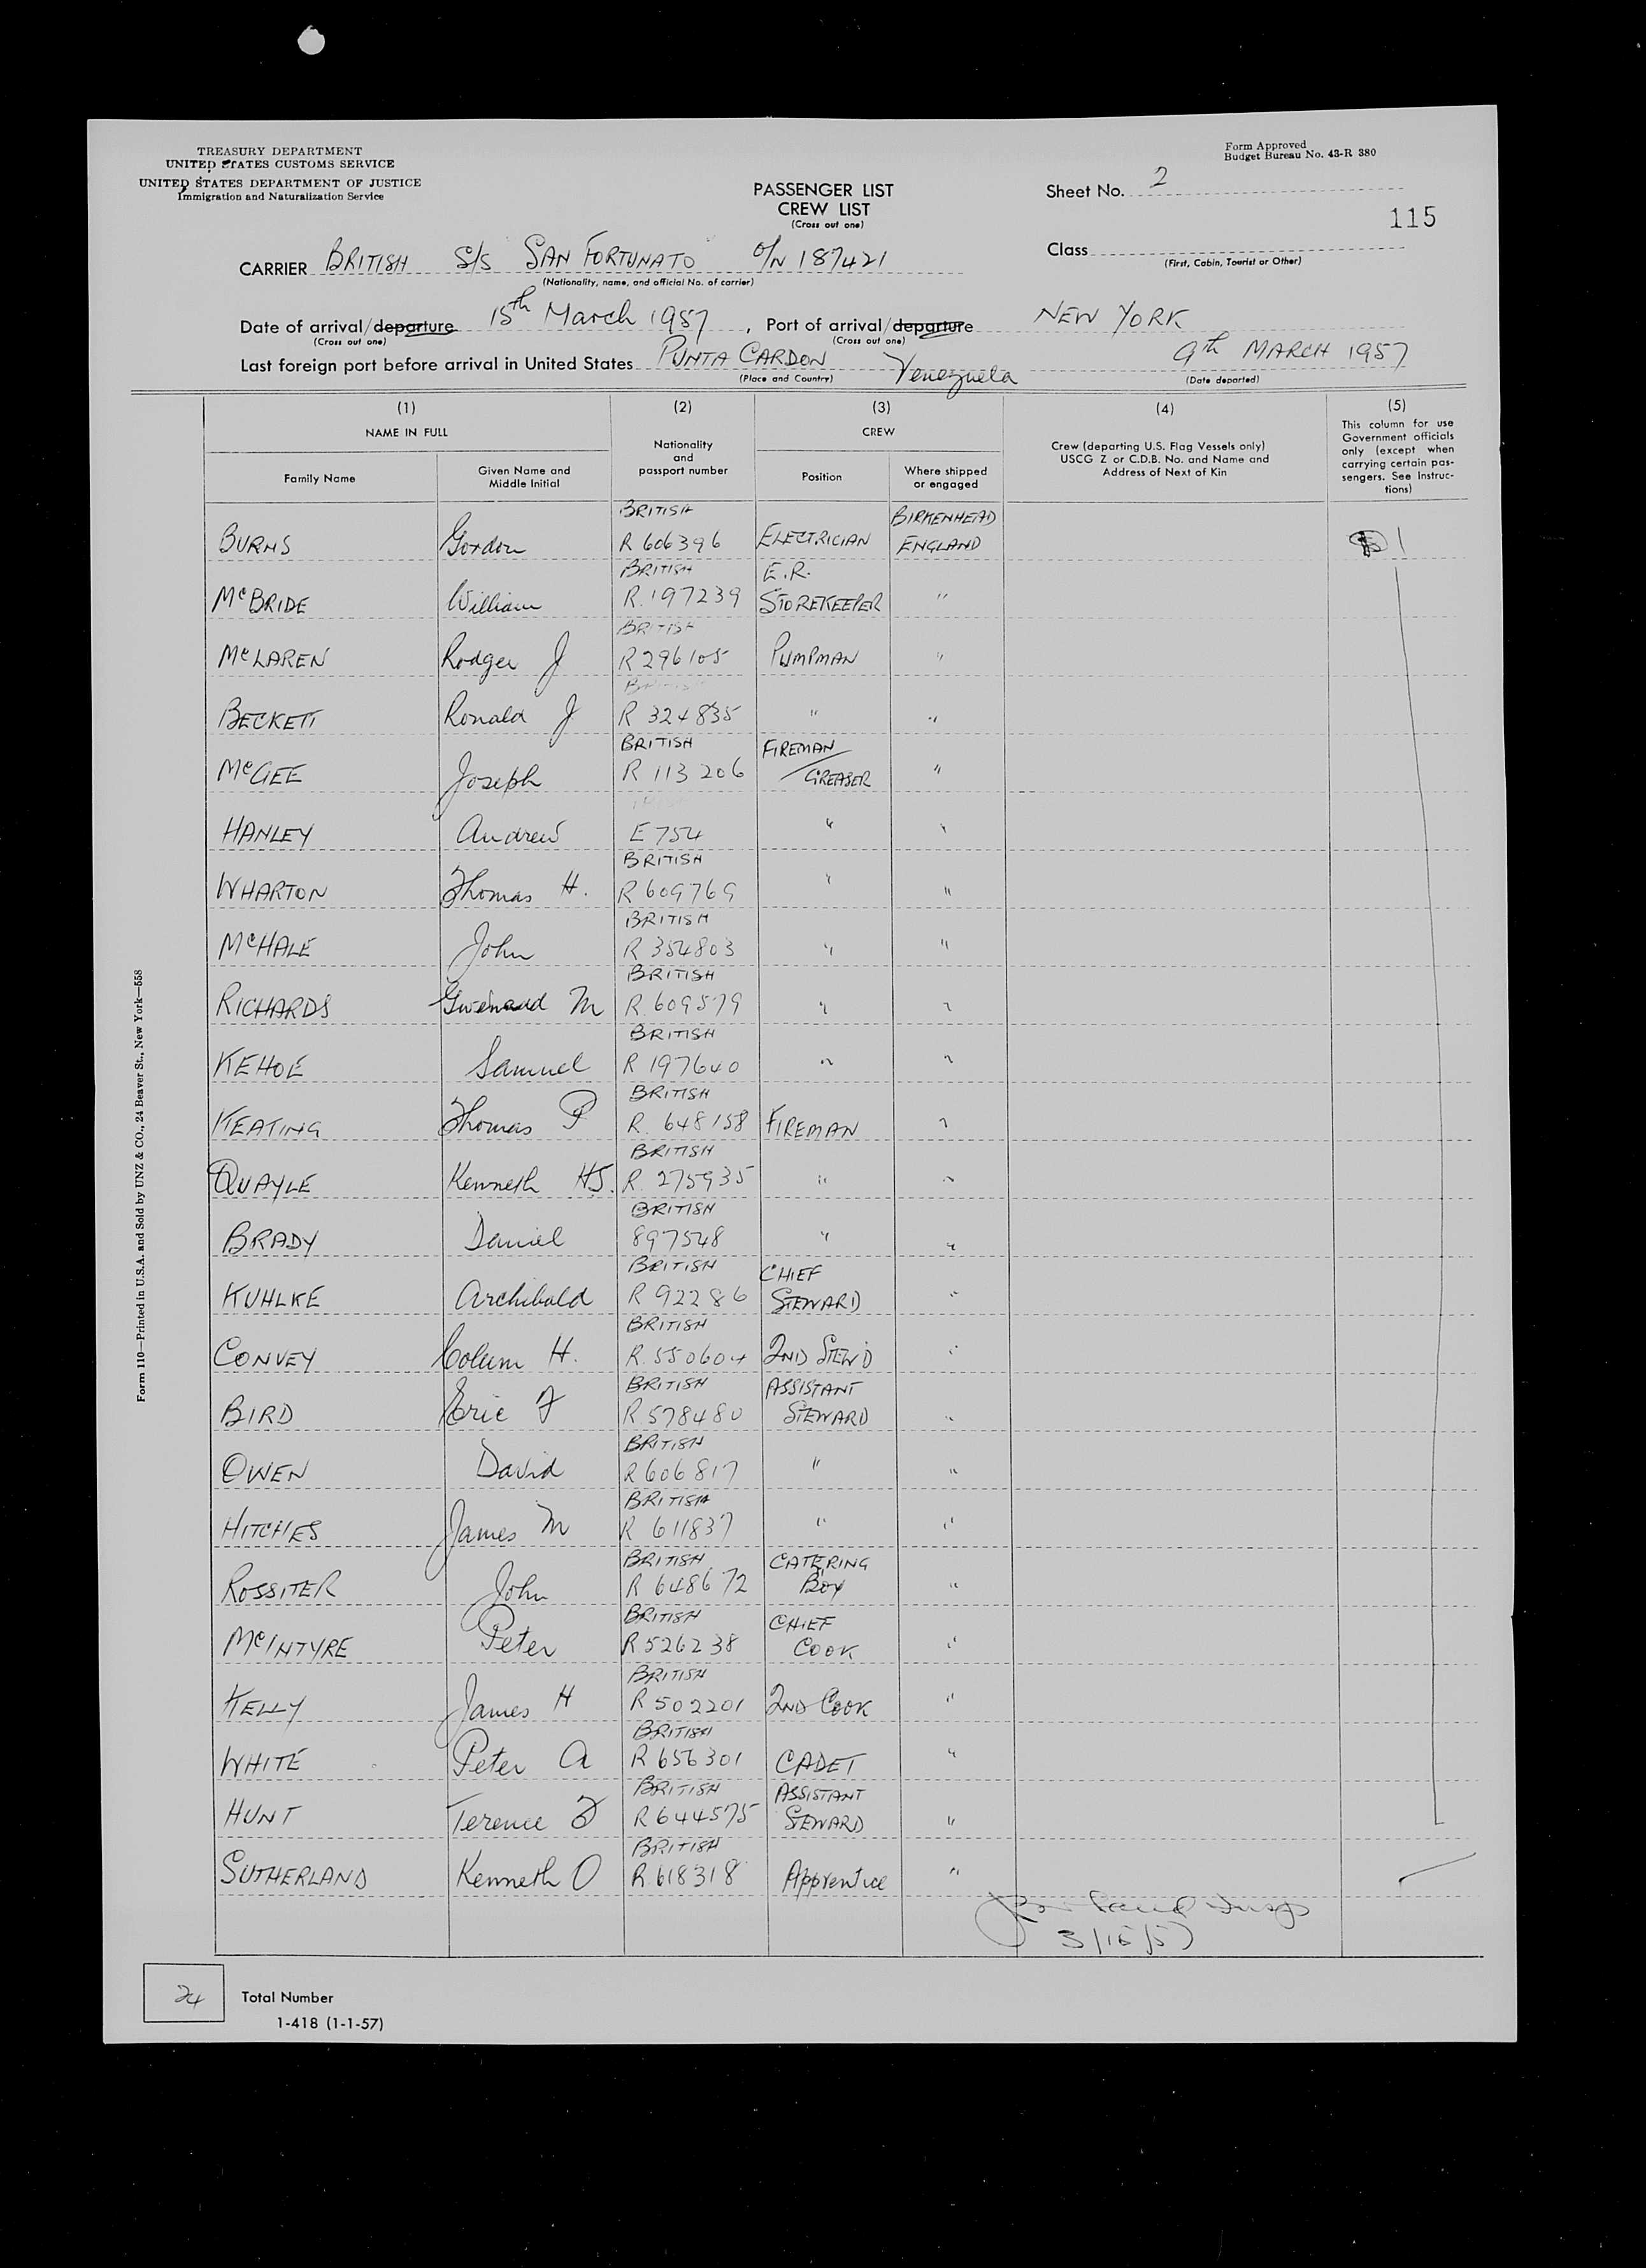 TREASURY DEPARTMENT
UNITED STATES CUSTOMS SERVICE
UNITED STATES DEPARTMENT OF JUSTICE
Immigration and Naturalization Service
Form Approved
Budget Bureau No. 43-R 380
PASSENGER LIST
CREW LIST
(Cross out one)
Sheet No. 2
115
CARRIER BRITISH S/S SAN FORTUNATO O/N 187421
(Nationality, name, and official No. of carrier)
Class
(First, Cabin, Tourist or Other)
Date of arrival/departure 15th March 1957, Port of arrival/departure NEW YORK
(Cross out one) (Cross out one)
Last foreign port before arrival in United States PUNTA CARDON Venezuela 9th MARCH 1957
(Place and Country) (Date departed)
(1) (2) (3) (4) (5)
NAME IN FULL
Family Name
Given Name and Middle Initial
Nationality and passport number
CREW
Position
Where shipped or engaged
Crew (departing U.S. Flag Vessels only)
USCG Z or C.D.B. No. and Name and
Address of Next of Kin
This column for use
Government officials
only (except when
carrying certain pas-
sengers. See Instruc-
tions)
BURNS Gordon BRITISH R 606396 ELECTRICIAN BIRKENHEAD ENGLAND
McBRIDE William BRITISH R.197239 E.R. STOREKEEPER "
McLAREN Rodger J BRITISH R 296105 PUMPMAN "
BECKETT Ronald J BRITISH R 324835 " "
McGEE Joseph BRITISH R 113206 FIREMAN/GREASER "
HANLEY Andrew E 754 " "
WHARTON Thomas H. BRITISH R 609769 " "
McHALE John BRITISH R 354803 " "
RICHARDS M BRITISH R.609579 " "
KEHOE Samuel BRITISH R 197640 " "
KEATING Thomas P BRITISH R. 648158 FIREMAN "
QUAYLE Kenneth HJ. BRITISH R. 275935 " "
BRADY Daniel BRITISH 897548 " "
KUHLKE Archibald BRITISH R 92286 CHIEF STEWARD "
CONVEY Colum H. BRITISH R.550604 2ND STEW'D "
BIRD Eric F BRITISH R.578480 ASSISTANT STEWARD "
OWEN David BRITISH R 606817 " "
HITCHES James M BRITISH R 611837 " "
ROSSITER John BRITISH R 648672 CATERING BOY "
McINTYRE Peter BRITISH R 526238 CHIEF COOK "
KELLY James H BRITISH R 502201 2ND COOK "
WHITE Peter A BRITISH R 656301 CADET "
HUNT Terence BRITISH R 644575 ASSISTANT SEWARD "
SUTHERLAND Kenneth O BRITISH R.618318 Apprentice "
3/15/57
24 Total Number
1-418 (1-1-57)
Form 110—Printed in U.S.A. and Sold by UNZ & CO., 24 Beaver St., New York—558